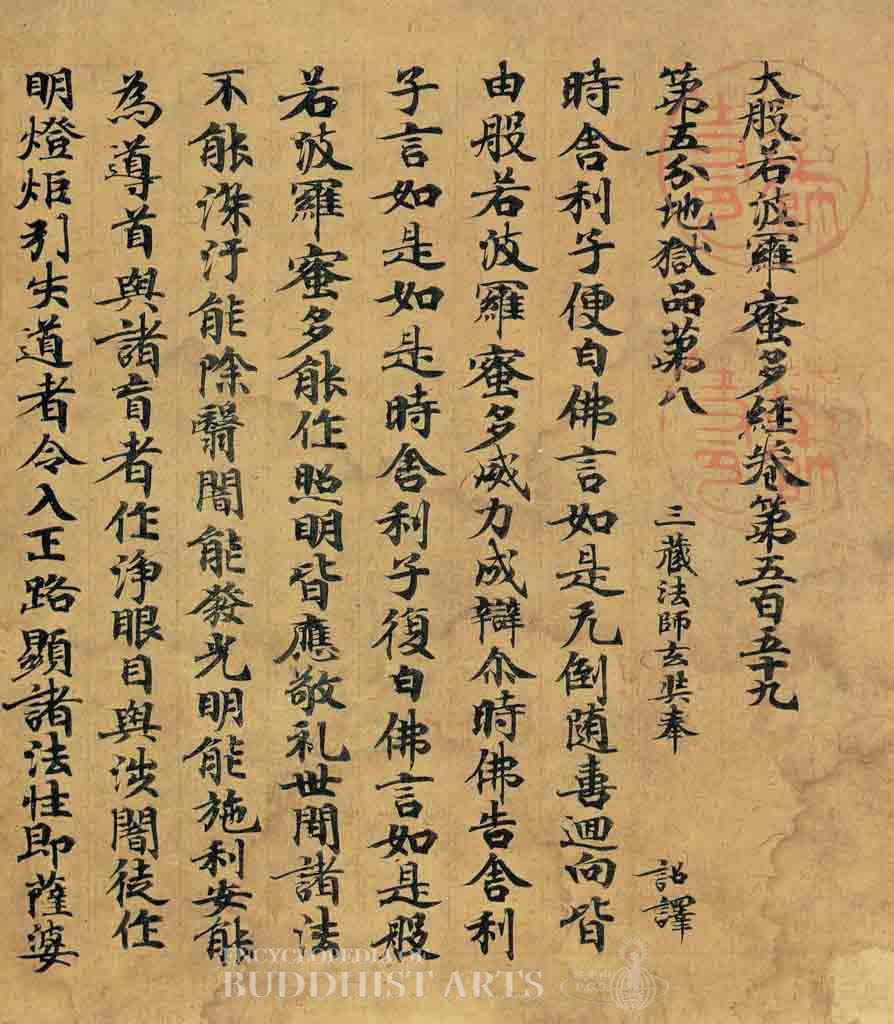 大般若波羅蜜多經卷第五百五十九
第五分地獄品第八
三藏法師玄奘奉 詔譯
時舍利子便白佛言如是无倒随喜迴向皆
由般若波羅蜜多威力成辯尒時佛告舍利
子言如是如是時舍利子復白佛言如是般
若波羅蜜多能作照明皆應敬礼世間諸法
不能染汙能除翳闇能發光明能施利安能
為導首與諸盲者作淨眼目與涉闇徒作
明燈炬引失道者令入正路顯諸法性即薩婆
ENCYCLOPEDIA OF
BUDDHIST ARTS